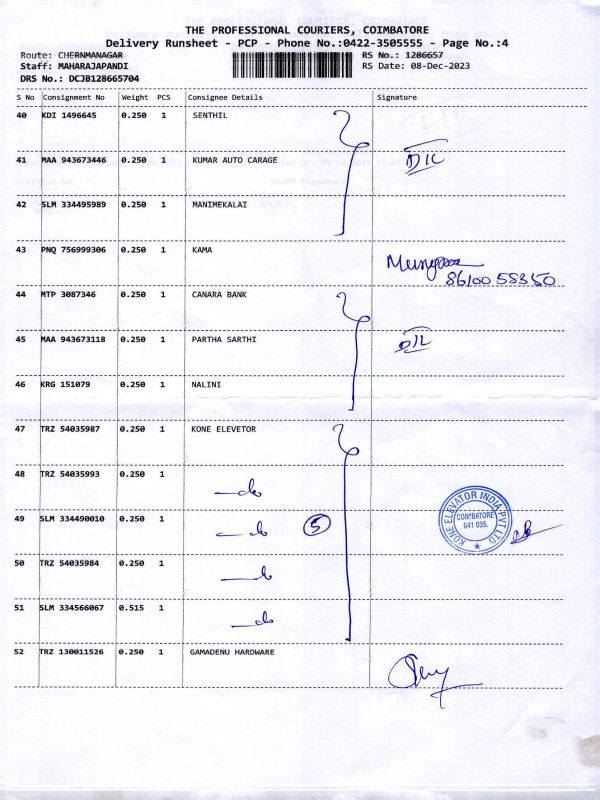 THE PROFESSIONAL COURIERS, COIMBATORE
Delivery Runsheet - PCP - Phone No.:0422-3505555 - Page No.:4
Route: CHERNMANAGAR RS No.: 1286657
Staff: MAHARAJAPANDI RS Date: 08-Dec-2023
DRS No.: DCJB128665704
S No Consignment No Weight PCS Consignee Details Signature
40 KDI 1496645 0.250 1 SENTHIL
41 MAA 943673446 0.250 1 KUMAR AUTO CARAGE
42 SLM 334495989 0.250 1 MANIMEKALAI
43 PNQ 756999306 0.250 1 KAMA
8610055350
44 MTP 3087346 0.250 1 CANARA BANK
45 MAA 943673118 0.250 1 PARTHA SARTHI
46 KRG 151079 0.250 1 NALINI
47 TRZ 54035987 0.250 1 KONE ELEVETOR
48 TRZ 54035993 0.250 1 do
49 SLM 334490010 0.250 1 do 5
KONE ELEVATOR INDIA PVT LTD
COIMBATORE
641 035.
50 TRZ 54035984 0.250 1 do
51 SLM 334566067 0.515 1 do
52 TRZ 130011526 0.250 1 GAMADENU HARDWARE